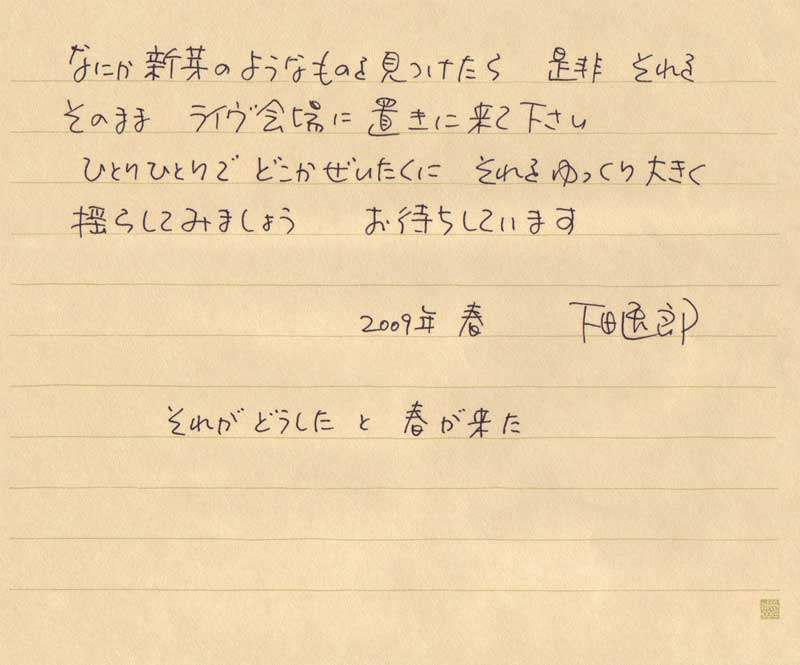 なにか新芽のようなものを見つけたら　是非　それを
そのまま　ライヴ会場に置きに来て下さい
ひとりひとりで　どこかぜいたくに　それをゆっくり大きく
揺らしてみましょう　　お待ちしています
2009年 春　　下田逸郎
それがどうした と 春が来た